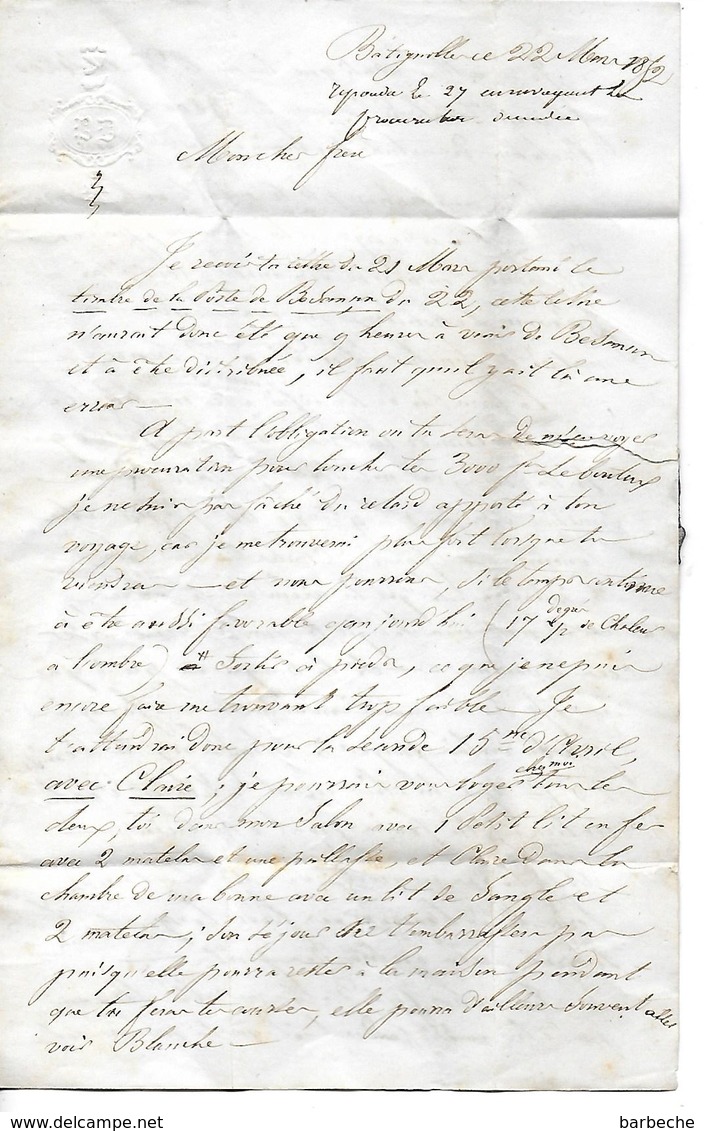 Batignolle ce 22 Mars 1852
repondu le 27 en envoyant la
procuration
Mon cher frere
Je reçois ta lettre du 21 Mars portant le
timbre de la Poste de Besançon du 22, cette lettre
n'aurait donc été que 9 heures à venir de Besançon
et à être distribuée, il faut qu'il y ait là une
erreur
A part l'obligation où tu seras de m'envoyer
une procuration pour toucher tes 3000 f.
je ne suis pas fâché du retard apporté à ton
voyage, car je me trouverai plus fort lorsque tu
viendras — et nous pourrons, si le temps continue
à être aussi favorable qu'aujourd'hui (17 degrés 1/2 de Chaleur
à l'ombre) Sortir à pieds, ce que je ne puis
encore faire me trouvant trop faible — Je
t'attendrai donc pour la seconde 15.ne d'Avril,
avec Claire ; je pourrai vous loger chez moi tous les
deux, toi dans mon Salon avec 1 petit lit en fer
avec 2 matelas et une paillasse, et Claire dans la
chambre de ma bonne avec un lit de Sangle et
2 matelas ; Son séjour ne t'embarrassera pas
puisqu'elle pourra rester à la maison pendant
que tu feras tes courses, elle pourra d'ailleurs souvent aller
voir Blanche —
barbeche